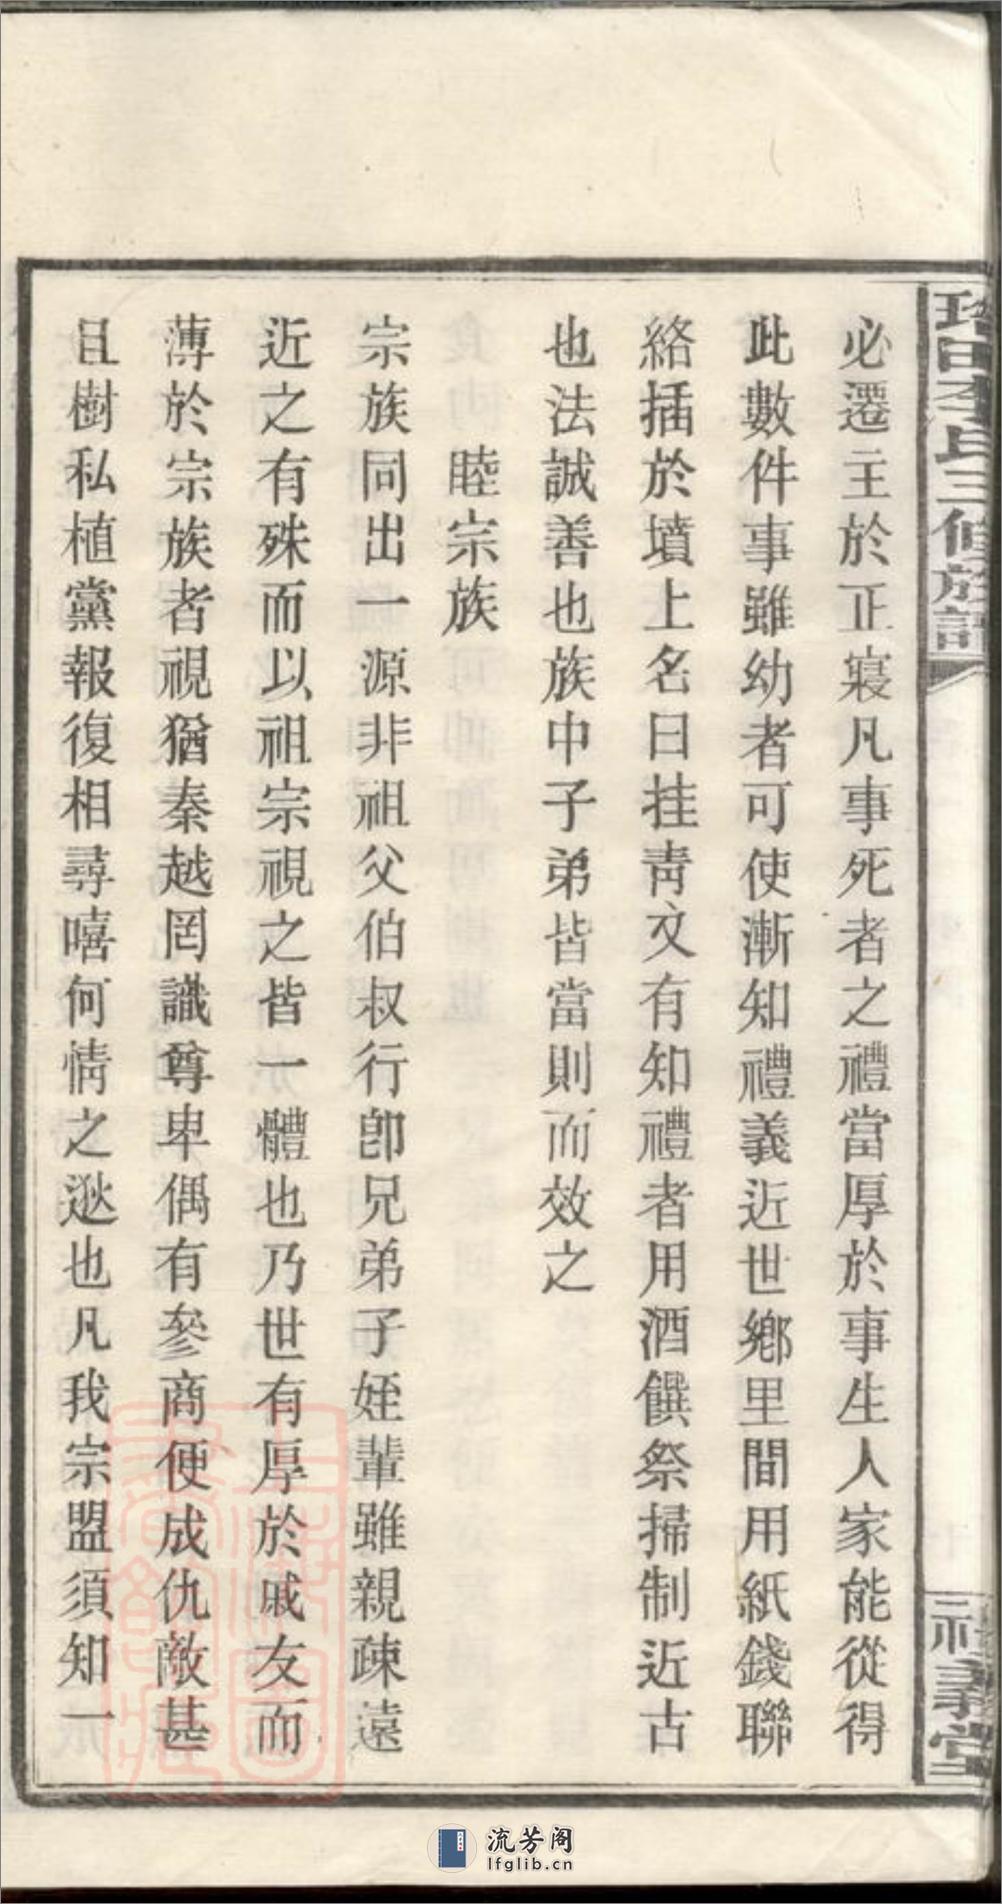 必遷主於正寢凡事死者之禮當厚於事生人家能從得
此數件事雖幼者可使漸知禮義近世鄉里間用紙錢聯
絡插於墳上名曰挂靑文有知禮者用酒饌祭掃制近古
也法誠善也族中子弟皆當則而效之
睦宗族
宗族同出一源非祖父伯叔行卽兄弟子姪輩雖親疎遠
近之有殊而以祖宗視之皆一體也乃世有厚於戚友而
薄於宗族者視猶秦越罔識尊卑偶有參商便成仇敵甚
且樹私植黨報復相尋嘻何情之逖也凡我宗盟須知一
田李氏三修族譜
義堂
流芳阁
lfglib.cn